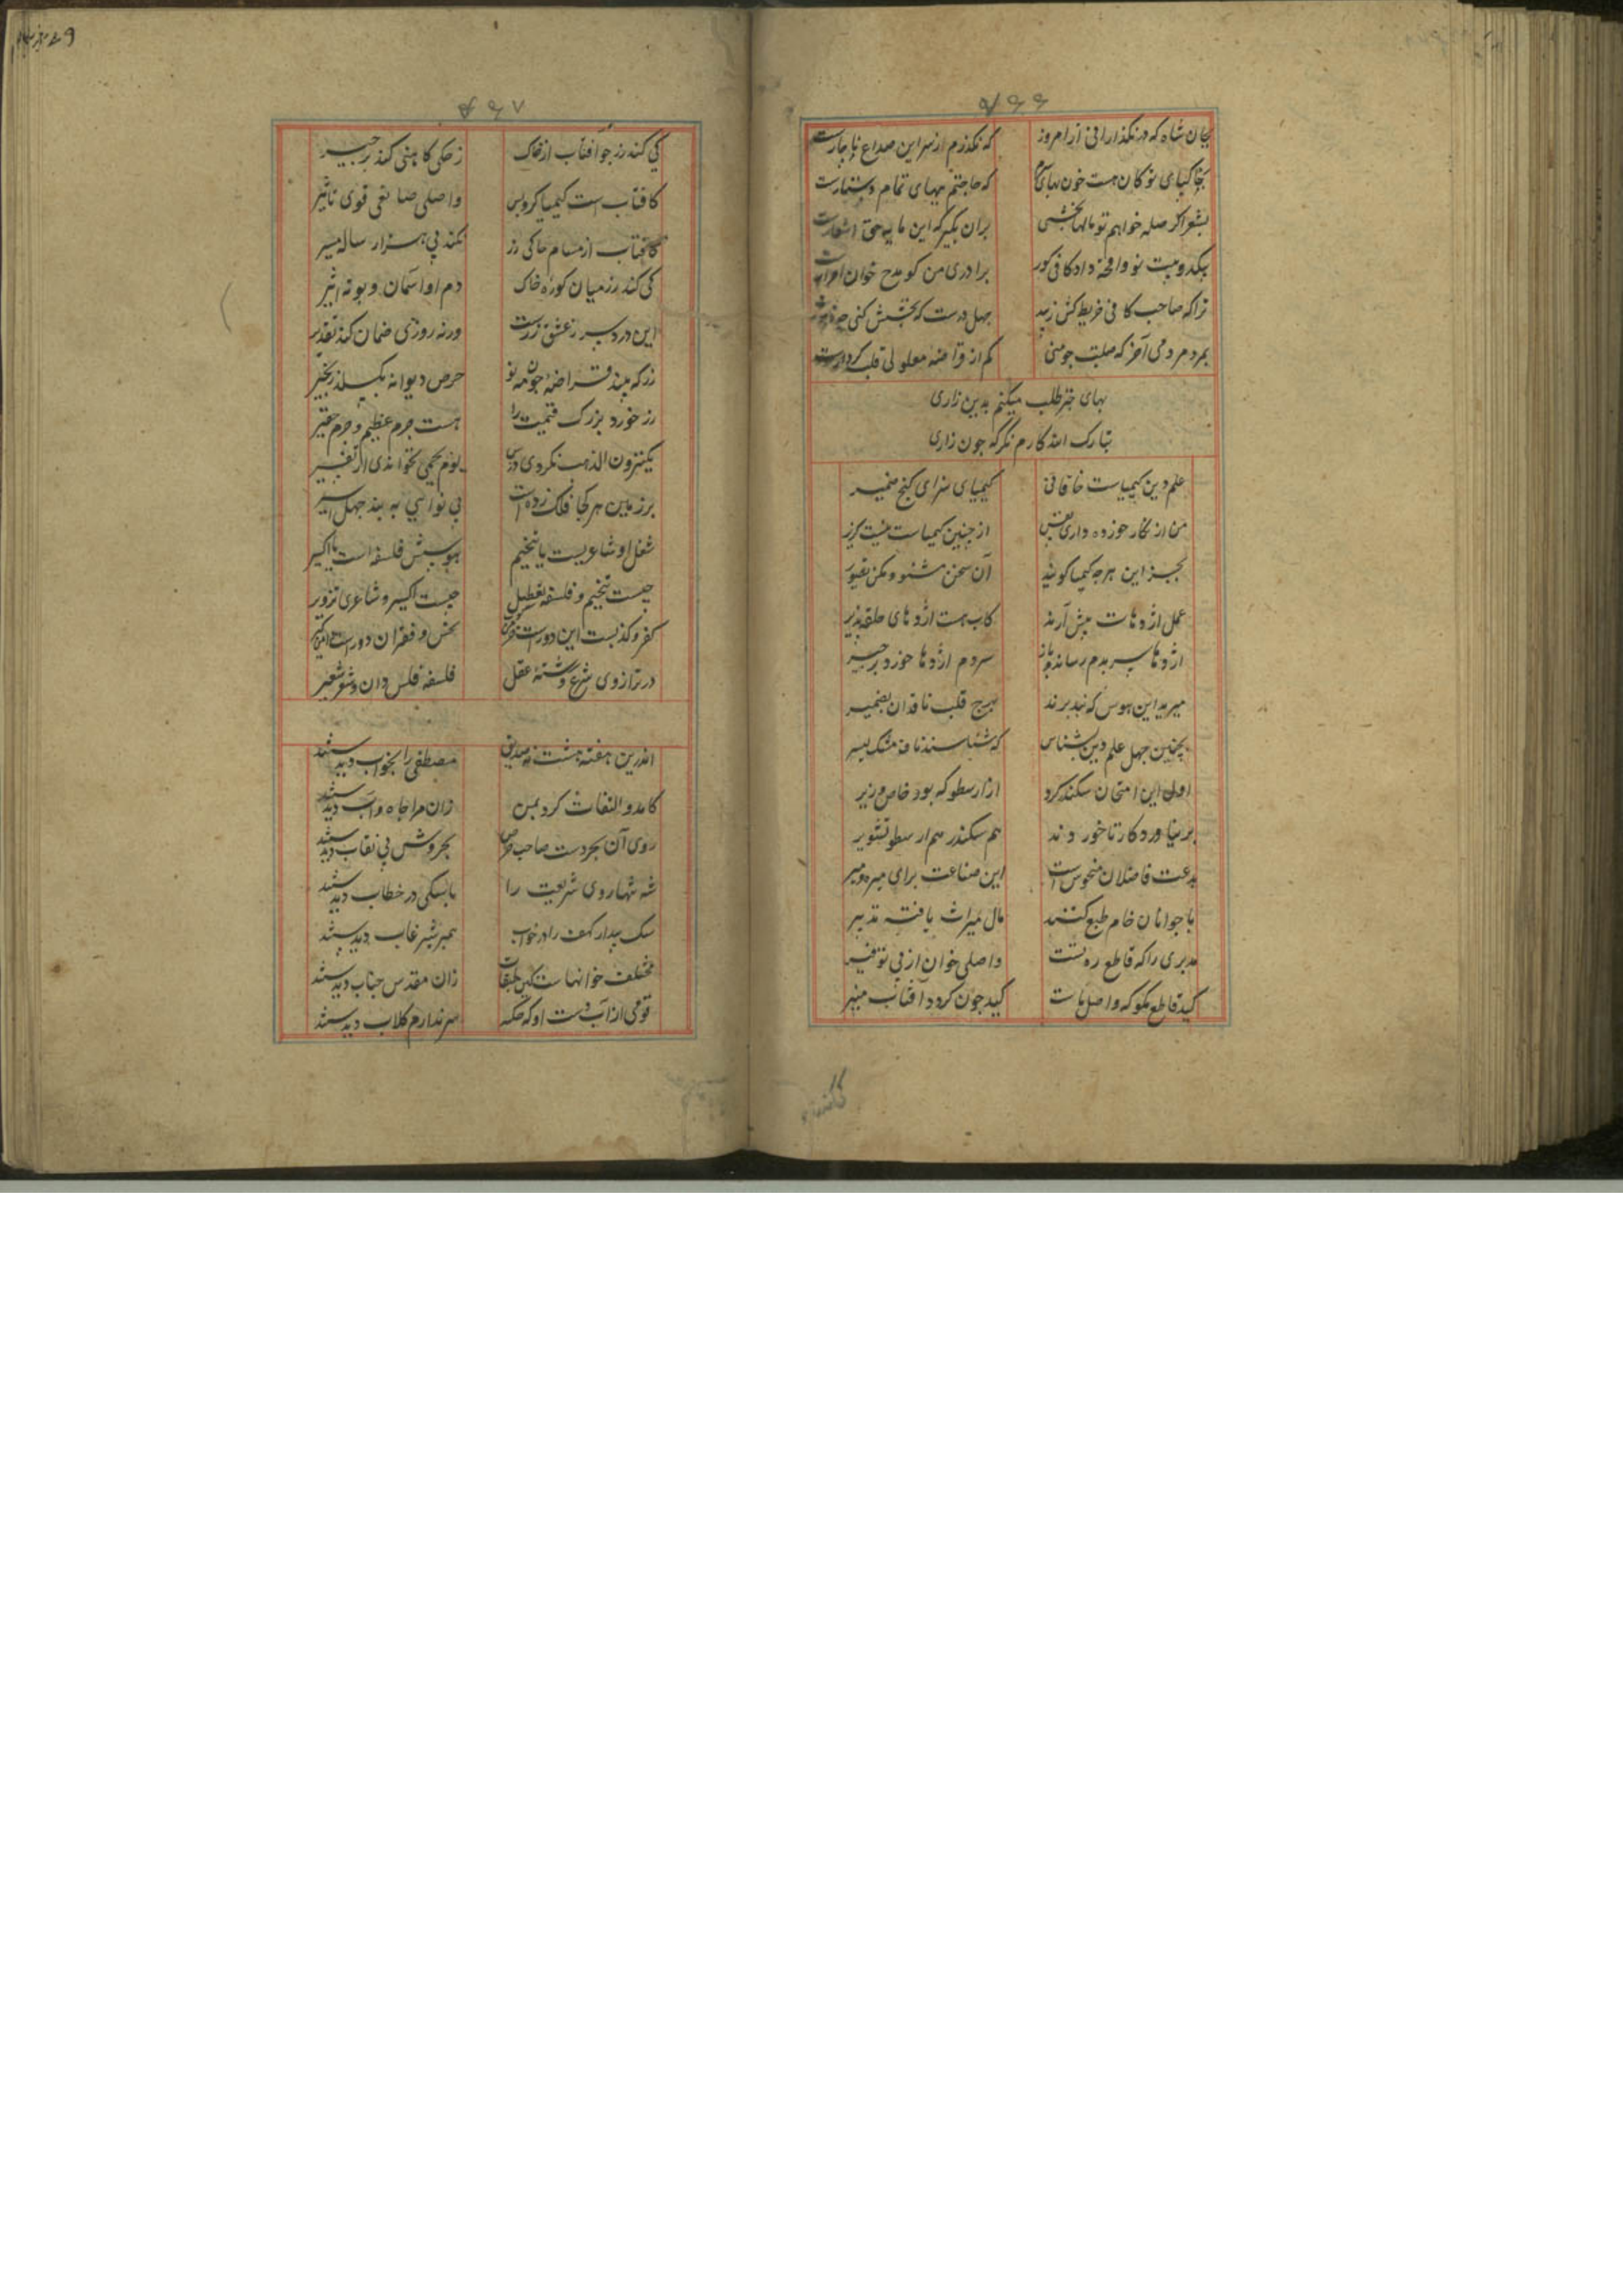 ۷۶۶
بجان شاه که در نگذارانی از امروز که نگذرم از سر این صداع ناچارست
بشعر اگر صله خواهم تو مالها بخشی بران بگیر که این مایه حق اشعارست
بیکدو بیت نود واقچه داد کافی کور برادری من کو مدح خوان احرارست
ترا که صاحب کافی خریطه کش زیبد چهل درست که بخشش کنی
کم از قراضه معلولی قلب کردارست
بهای خیر طلب میکنم بدین زاری
تبارک الله کارم نگر که چون زاری
علم دین کیمیاست خاقانی کیمیای سزای گنج ضمیر
من از کار حوزه داری نفس از چنین کیمیات نیست گزیر
بجز این هرچه کیمیا گویند آن سخن مشنو و مکن تغیور
عمل اژدهات پیش آرند کاب هست اژدهای حلقه پذیر
اژدها سر بدم رساند باز سر و دم اژدها خورد بر خیر
میر بد این هوس که نپذیرند هیچ قلب ناقدان بضمیر
بچنین جهل علم دین بشناس که شناسند نافه مشک بسیر
اول این امتحان سکندر کرد از ارسطو که بود خاص وزیر
بر نیاورد کار تا خوردند هم سکندر هم ارسطو تشویر
بدعت فاضلان منحوس است این صناعت برای میره و میر
با جوانان خام طبع کنند مال میراث یافته تدبیر
مدبری را که قاطع ره تست واصلی خوان از پی توفیر
کید قاطع مگو که واصل ماست کید چون گردد آفتاب منیر
۷۶۷
کی کند زر جو آفتاب از خاک زحلی کاهنی کند بر خیر
کافتاب است کیمیاگر و بس واصلی صانعی قوی تاثیر
کافتاب از مسام خاکی زر نکند بی هزار ساله مسیر
کی کند زر میان کوره خاک دم او آسمان و بوته اثیر
این دردسر ز عشق زرست ورنه روزی ضمان کند تقدیر
زر که بیند قراضه چون مه نو حرص دیوانه بگسلد زنجیر
زر خورد بزرک قیمت را هست جرم عظیم و جرم حقیر
یکنزون الذهب نکردی درس یوم یحمی نخواندی از تفسیر
بر زمین هر کجا فلک زده است بی نوایی به بند جهل اسیر
شغل او شاعریست یا تنجیم هوسش فلسفه است یا اکسیر
چیست تنجیم و فلسفه تعطیل چیست اکسیر و شاعری تزویر
کفر و کذبست این دو راست خرمن نحس و فقر ان دو راست دامن گیر
در ترازوی شرع و رشته عقل فلسفه فلس دان و شعر شعیر
اندرین هفته هشت نه صدیق مصطفی را بخواب دیدستند
کامد و التفات کرد بمن زان مرا جاه و آب دیدستند
روی آن بحر دست صاحب حوض بحر وش بی نقاب دیدستند
شه شهاروی شریعت را با سگی در خطاب دیدستند
سگ بیدار کهف را در خواب همبر شیر غاب دیدستند
مختلف خوانهاست کین طبقات زان مقدس جناب دیدستند
قومی از آب دست او که چکد سر ندارم گلاب دیدستند